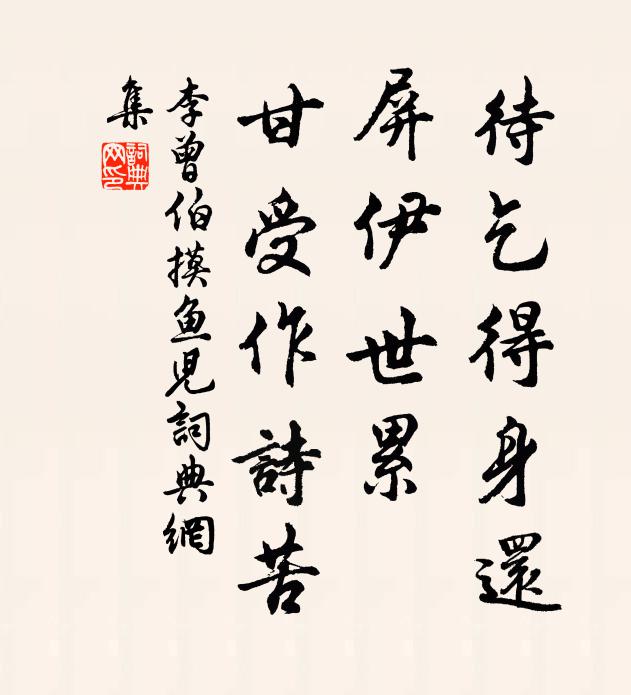 待乞得身還
屏伊世累
甘受作詩苦
李曾伯摸鱼兒詞典網
集
詞典
网印